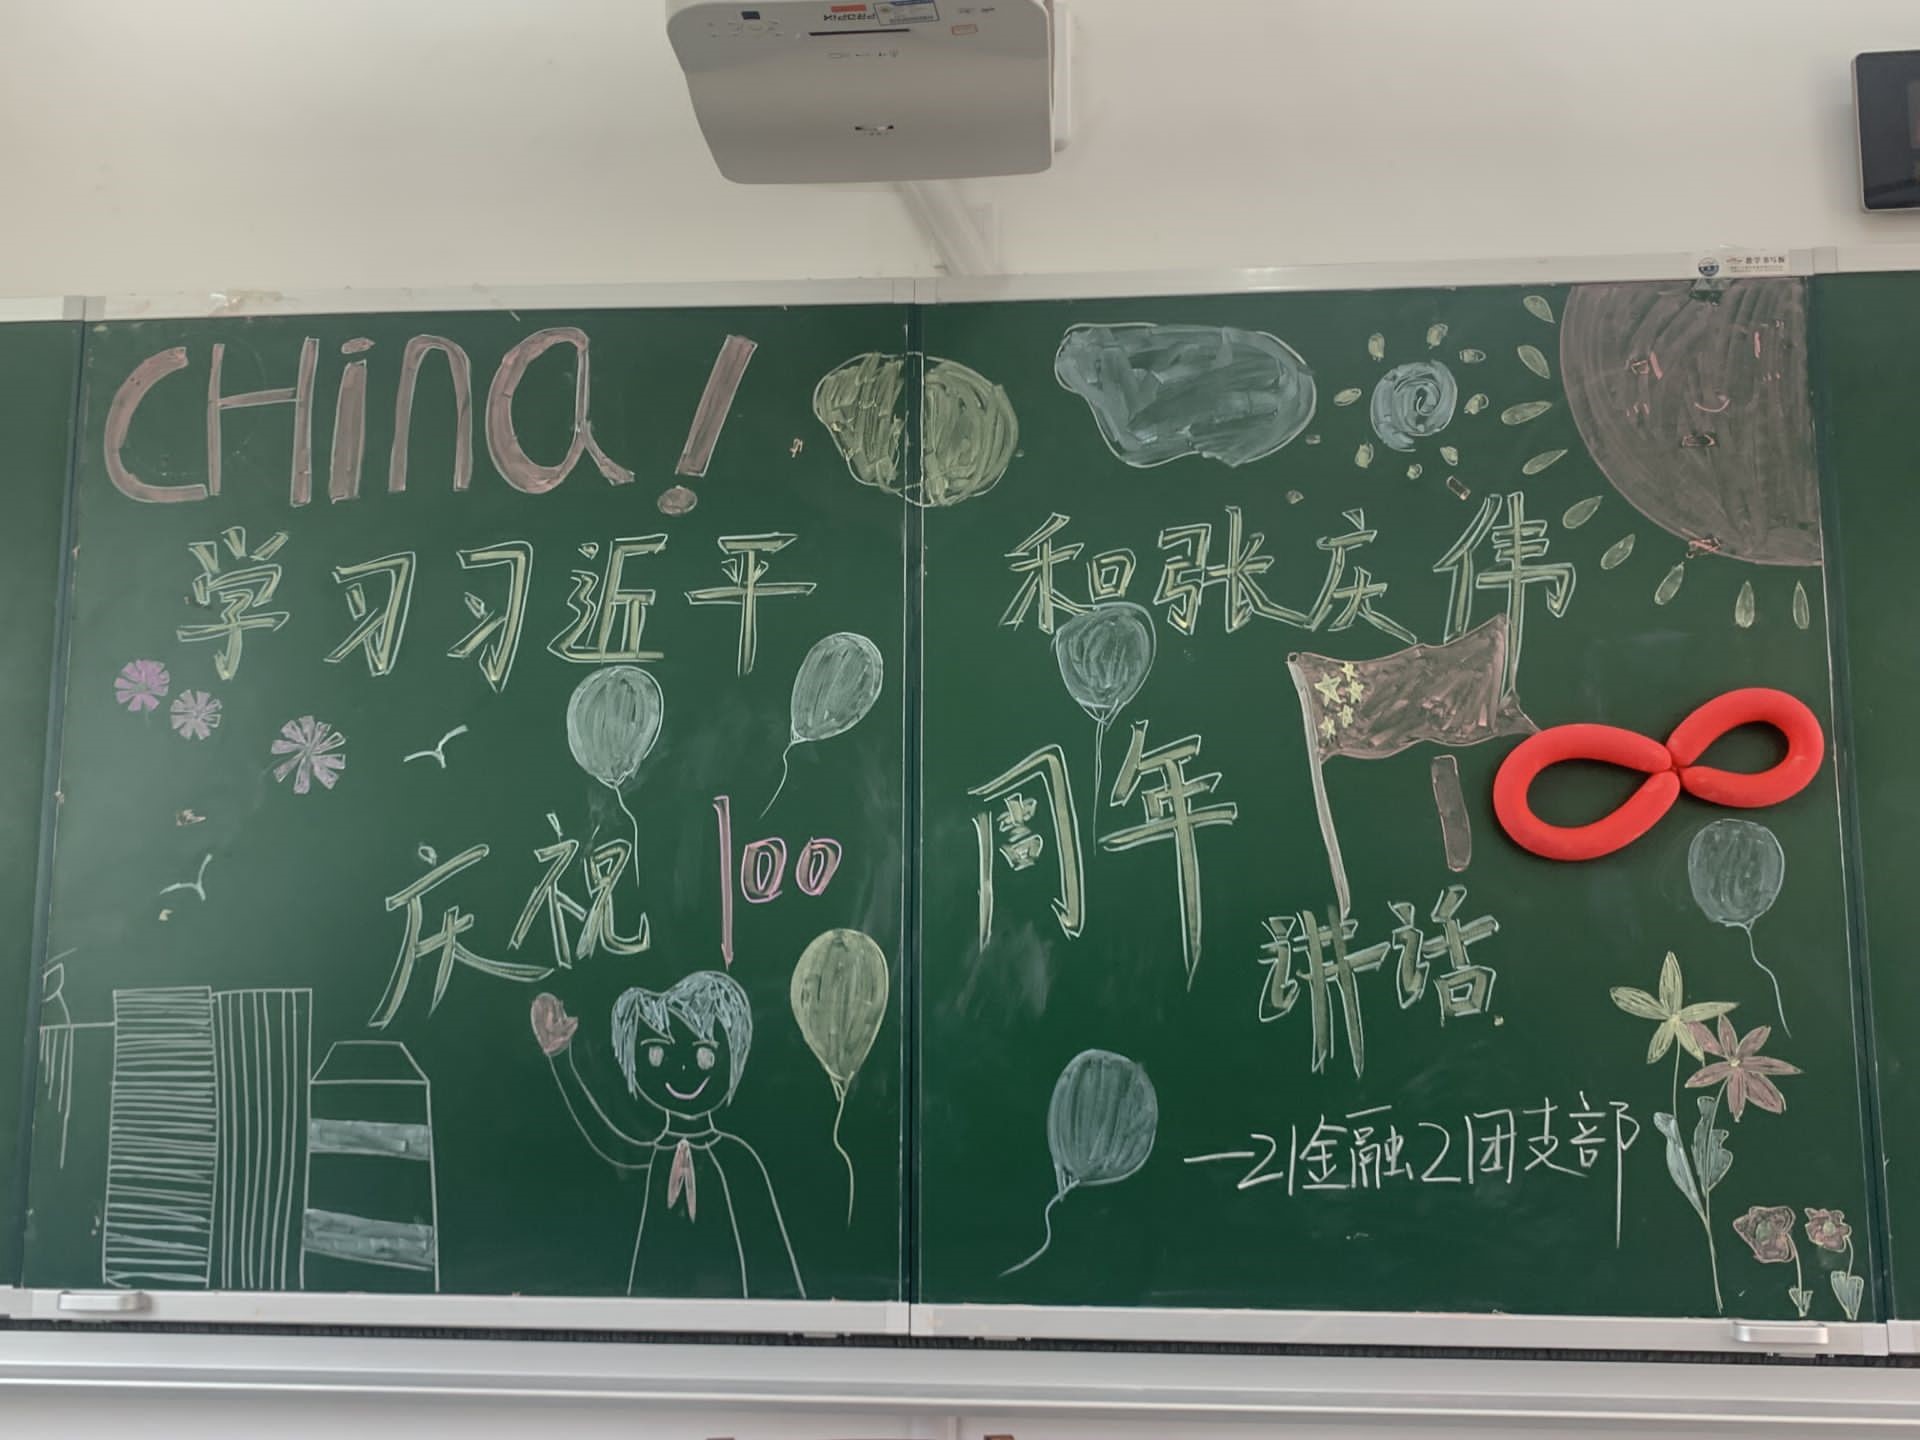 PROPIX
CHina!
学习习近平 和张庆伟
庆祝100 周年
讲话
—21金融2团支部